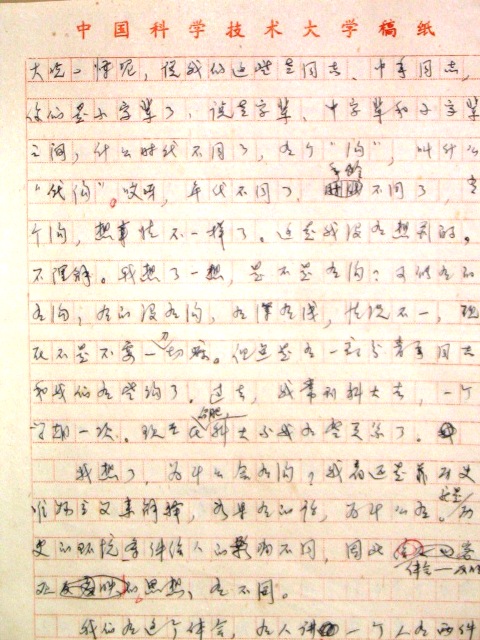 中国科学技术大学稿纸
大吃一惊呢,说我们这些老同志、中年同志,
你们是小字辈了,说老字辈、中字辈和小字辈
之间,什么时代不同了,有个"沟",叫什么
"代沟"。哎呀,年代不同了,年龄不同了,有
个沟,想事情不一样了。这是我没有想到的。
不理解。我想了一想,是不是有沟?又似有的
有沟,有的没有沟,有深有浅,情况不一,现
在不是不要一刀切嘛。但总是有一部分青年同志
和我们有些沟了。过去,我常到科大去,一个
学期一次。现在合肥科大不我有些关系了。
我想了,为什么会有沟?我看还是历史
唯物主义来解释,如果有的话,为什么有。历
史的环境条件给人的影响不同,因此
的思想,有不同。
我们有这个体会,有人讲一个人有两件